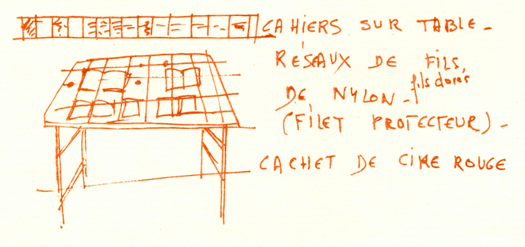 CAHIERS SUR TABLE -
RÉSEAUX DE FILS,
DE NYLON - fils dorés
(FILET PROTECTEUR) -
CACHET DE CIRE ROUGE